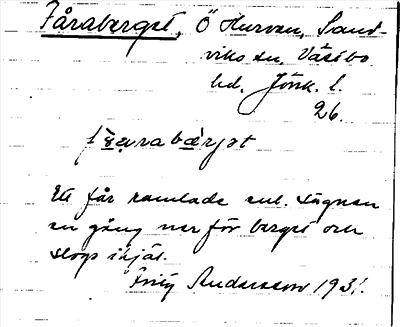 Fåraberget, Ö Hurven, Sand-
viks sn, Västbo
hd, Jönk. l.
26.
Ett får ramlade enl. sägnen
en gång ner för berget och
slogs ihjäl.
Fritz Andersson 1931.